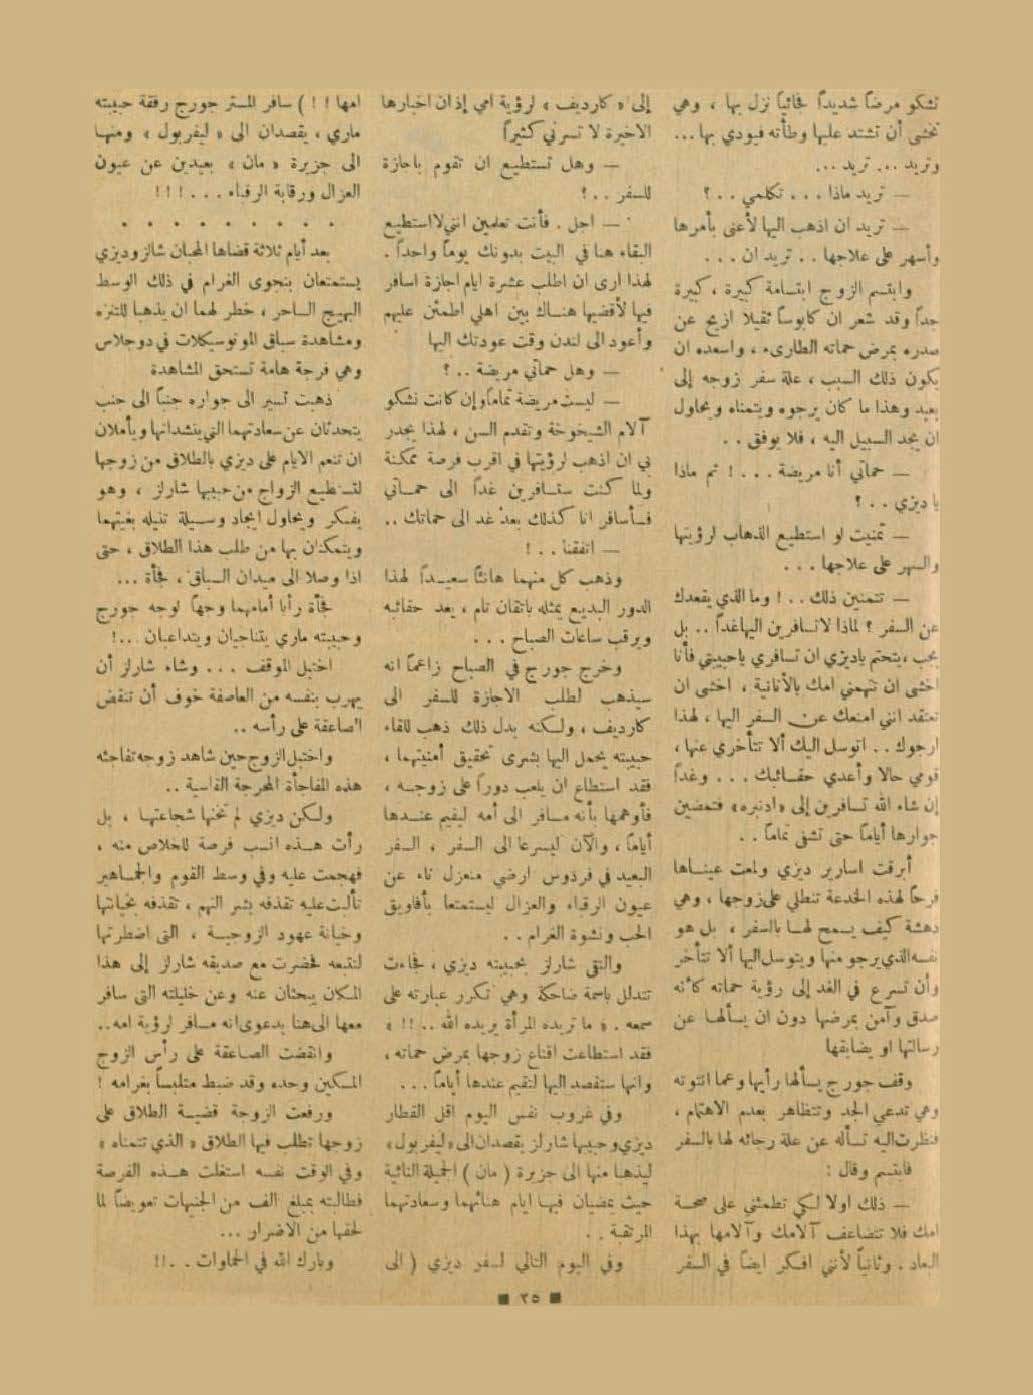 تشكو مرضاً شديداً فجائياً نزل بها ، وهي
تخشى أن تشتد عليها وطأته فيودي بها ...
وتريد ... تريد ...
— تريد ماذا ... تكلمي .. ؟
— تريد ان اذهب اليها لأعنى بأمرها
وأسهر على علاجها .. تريد ان ...
وابتسم الزوج ابتسامة كبيرة ، كبيرة
جداً وقد شعر ان كابوساً ثقيلا ازيح عن
صدره بمرض حماته الطارىء ، واسعده ان
يكون ذلك السبب ، علة سفر زوجه إلى
بعيد وهذا ما كان يرجوه ويتمناه ويحاول
ان يجد السبيل اليه ، فلا يوفق ..
— حماتي أنا مريضة ... ! ثم ماذا
يا ديزي .. ؟
— تمنيت لو استطيع الذهاب لرؤيتها
والسهر على علاجها ...
— تتمنين ذلك .. ! وما الذي يقعدك
عن السفر ؟ لماذا لا تسافرين اليها غداً .. بل
يجب ، يتحتم يا ديزي ان تسافري يا حبيبتي فأنا
اخشى ان تتهمني امك بالأنانية ، اخشى ان
تعتقد انني امنعك عن السفر اليها ، لهذا
ارجوك .. اتوسل اليك ألا تتأخري عنها ،
قومي حالا وأعدي حقائبك ... وغداً
إن شاء الله تسافرين إلى «ادنبره» فتمضين
جوارها أياماً حتى تشفى تماماً ..
أبرقت اسارير ديزي ولمعت عيناها
فرحاً لهذه الخدعة تنطلي على زوجها ، وهي
دهشة كيف يسمح لها بالسفر ، بل هو
نفسه الذي يرجو منها ويتوسل اليها ألا تتأخر
وأن تسرع في الغد إلى رؤية حماته كأنه
صدق وآمن بمرضها دون ان يسألها عن
رسالتها او يضايقها
وقف جورج يسألها رأيها وعما انتوته
وهي تدعي الجد وتتظاهر بعدم الاهتمام ،
فنظرت اليه تسأله عن علة رجائه لها بالسفر
فابتسم وقال :
— ذلك اولا لكي تطمئني على صحة
امك فلا تتضاعف آلامك وآلامها بهذا
البعاد . وثانياً لأنني افكر ايضاً في السفر
إلى « كارديف » لرؤية امي إذ ان اخبارها
الاخيرة لا تسرني كثيراً
— وهل تستطيع ان تقوم باجازة
للسفر .. ؟
— اجل . فأنت تعلمين انني لا استطيع
البقاء هنا في البيت بدونك يوماً واحداً .
لهذا ارى ان اطلب عشرة ايام اجازة اسافر
فيها لأقضيها هناك بين اهلي اطمئن عليهم
وأعود الى لندن وقت عودتك اليها
— وهل حماتي مريضة .. ؟
— ليست مريضة تماماً وإن كانت تشكو
آلام الشيخوخة وتقدم السن ، لهذا يجدر
بي ان اذهب لرؤيتها في اقرب فرصة ممكنة
ولما كنت ستسافرين غداً الى حماتي
فسأسافر انا كذلك بعد غد الى حماتك ..
— اتفقنا .. !
وذهب كل منهما هانئاً سعيداً لهذا
الدور البديع يمثله باتقان تام ، يعد حقائبه
ويرقب ساعات الصباح ...
وخرج جورج في الصباح زاعماً انه
سيذهب لطلب الاجازة للسفر الى
كارديف ، ولكنه بدل ذلك ذهب للقاء
حبيبته يحمل اليها بشرى تحقيق أمنيتهما ،
فقد استطاع ان يلعب دوراً على زوجه ،
فأوهمها بأنه مسافر الى أمه ليقيم عندها
أياماً ، والآن ليسرعا الى السفر ، السفر
البعيد في فردوس ارضي منعزل ناء عن
عيون الرقباء والعزال ليستمتعا بأفاويق
الحب ونشوة الغرام ..
والتقى شارلز بحبيبته ديزي ، فجاءت
تتدلل باسمة ضاحكة وهي تكرر عبارته على
سمعه . « ما تريده المرأة يريده الله .. !! »
فقد استطاعت اقناع زوجها بمرض حماته ،
وانها ستقصد اليها لتقيم عندها أياماً ...
وفي غروب نفس اليوم اقل القطار
ديزي وحبيبها شارلز يقصدان الى «ليفربول»
ليذهبا منها الى جزيرة ( مان ) الجميلة النائية
حيث يمضيان فيها ايام هنائهما وسعادتهما
المرتقبة ..
وفي اليوم التالي لسفر ديزي ( الى
امها !! ) سافر المستر جورج رفقة حبيبته
ماري ، يقصدان الى « ليفربول » ومنها
الى جزيرة « مان » بعيدين عن عيون
العزال ورقابة الرقباء ... !!!
. . . . . . . . .
بعد أيام ثلاثة قضاها المحبان شالز وديزي
يستمتعان بنجوى الغرام في ذلك الوسط
البهيج الساحر ، خطر لهما ان يذهبا للتنزه
ومشاهدة سباق الموتوسيكلات في دوجلاس
وهي فرجة هامة تستحق المشاهدة
ذهبت تسير الى جواره جنباً الى جنب
يتحدثان عن سعادتهما التي ينشدانها ويأملان
ان تنعم الايام على ديزي بالطلاق من زوجها
لتستطيع الزواج من حبيبها شارلز ، وهو
يفكر ويحاول ايجاد وسيلة تنيله بغيتهما
ويتمكنان بها من طلب هذا الطلاق ، حتى
اذا وصلا الى ميدان السباق ، فجأة ...
فجأة رأيا أمامهما وجهاً لوجه جورج
وحبيبته ماري يتناجيان ويتداعبان ... !
اختبل الموقف ... وشاء شارلز أن
يهرب بنفسه من العاصفة خوف أن تنقض
الصاعقة على رأسه ..
واختبل الزوج حين شاهد زوجه تفاجئه
هذه المفاجأة المحرجة القاسية ..
ولكن ديزي لم تخنها شجاعتها ، بل
رأت هذه انسب فرصة للخلاص منه ،
فهجمت عليه وفي وسط القوم والجماهير
تألبت عليه تقذفه بشر التهم ، تقذفه بخيانتها
وخيانة عهود الزوجية ، التى اضطرتها
لتتبعه فحضرت مع صديقه شارلز إلى هذا
المكان يبحثان عنه وعن خليلته التى سافر
معها الى هنا بدعوى انه مسافر لرؤية امه ..
وانقضت الصاعقة على رأس الزوج
المسكين وحده وقد ضبط متلبساً بغرامه !
ورفعت الزوجة قضية الطلاق على
زوجها تطلب فيها الطلاق « الذي تتمناه »
وفي الوقت نفسه استغلت هذه الفرصة
فطالبته بمبلغ الف من الجنيهات تعويضاً لما
لحقها من الاضرار ...
وبارك الله في الحماوات .. !!
■ ٢٥ ■